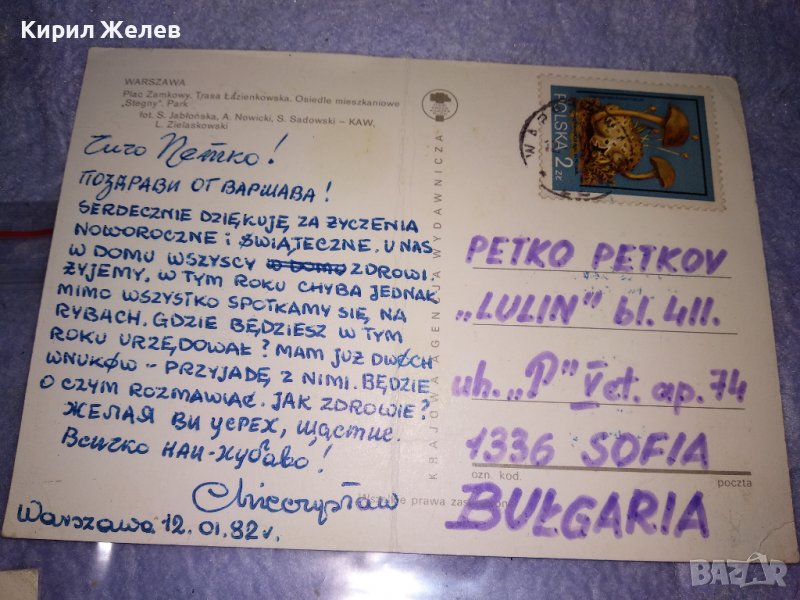 Кирил Желев
WARSZAWA
Plac Zamkowy. Trasa Łazienkowska. Osiedle mieszkaniowe
„Stegny”. Park
fot. S. Jabłońska, A. Nowicki, S. Sadowski – KAW,
L. Zielaskowski
Петко!
ПОЗДРАВИ ОТ ВАРШАВА!
SERDECZNIE DZIĘKUJĘ ZA ŻYCZENIA
NOWOROCZNE i ŚWIĄTECZNE. U NAS
W DOMU WSZYSCY W DOMU ZDROWI.
ŻYJEMY, W TYM ROKU CHYBA JEDNAK
MIMO WSZYSTKO SPOTKAMY SIĘ NA
RYBACH. GDZIE BĘDZIESZ W TYM
ROKU URZĘDOWAŁ? MAM JUŻ DWÓCH
WNUKÓW – PRZYJADĘ Z NIMI. BĘDZIE
O CZYM ROZMAWIAĆ. JAK ZDROWIE?
ЖЕЛАЯ ВИ УСРЕХ, ЩАСТИЕ.
Всичко НАЙ-ХУБАВО!
Warszawa 12.01.82 r.
KRAJOWA AGENCJA WYDAWNICZA
Wszelkie prawa zastrzeżone
POLSKA 2 ZŁ
PETKO PETKOV
„LULIN” bl. 411.
uh. „P” V et. ap. 74
1336 SOFIA
ozn. kod.
poczta
BUŁGARIA
BAZAR